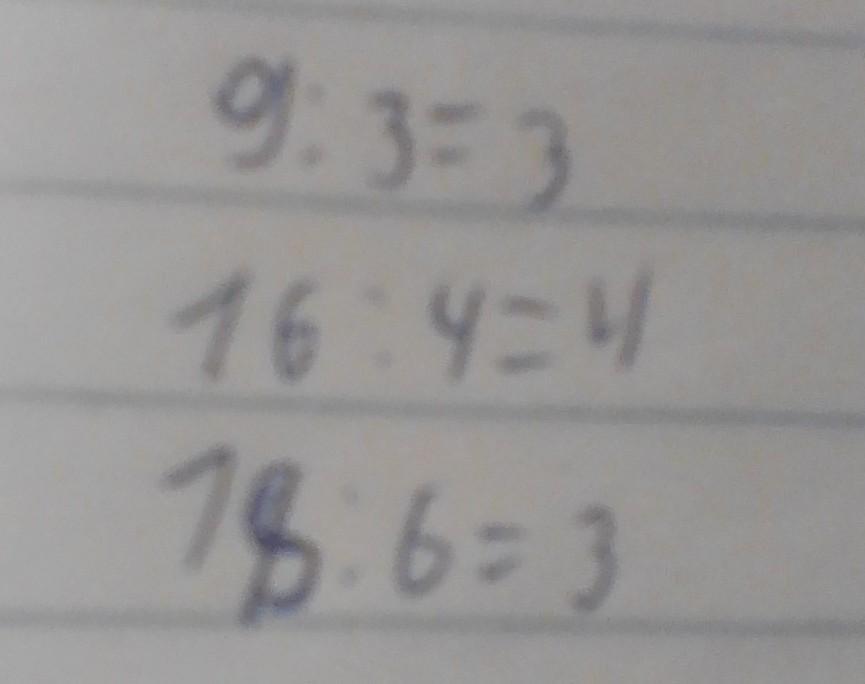 9:3=3
16:4=4
18:6=3